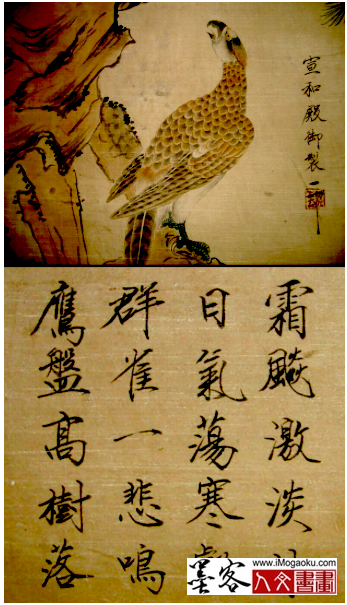 宣和殿御製
霜飈激淡
日氣蕩寒
群雀一悲鳴
鷹盤高樹落
www.iMogaoku.com
墨客
人文書畫